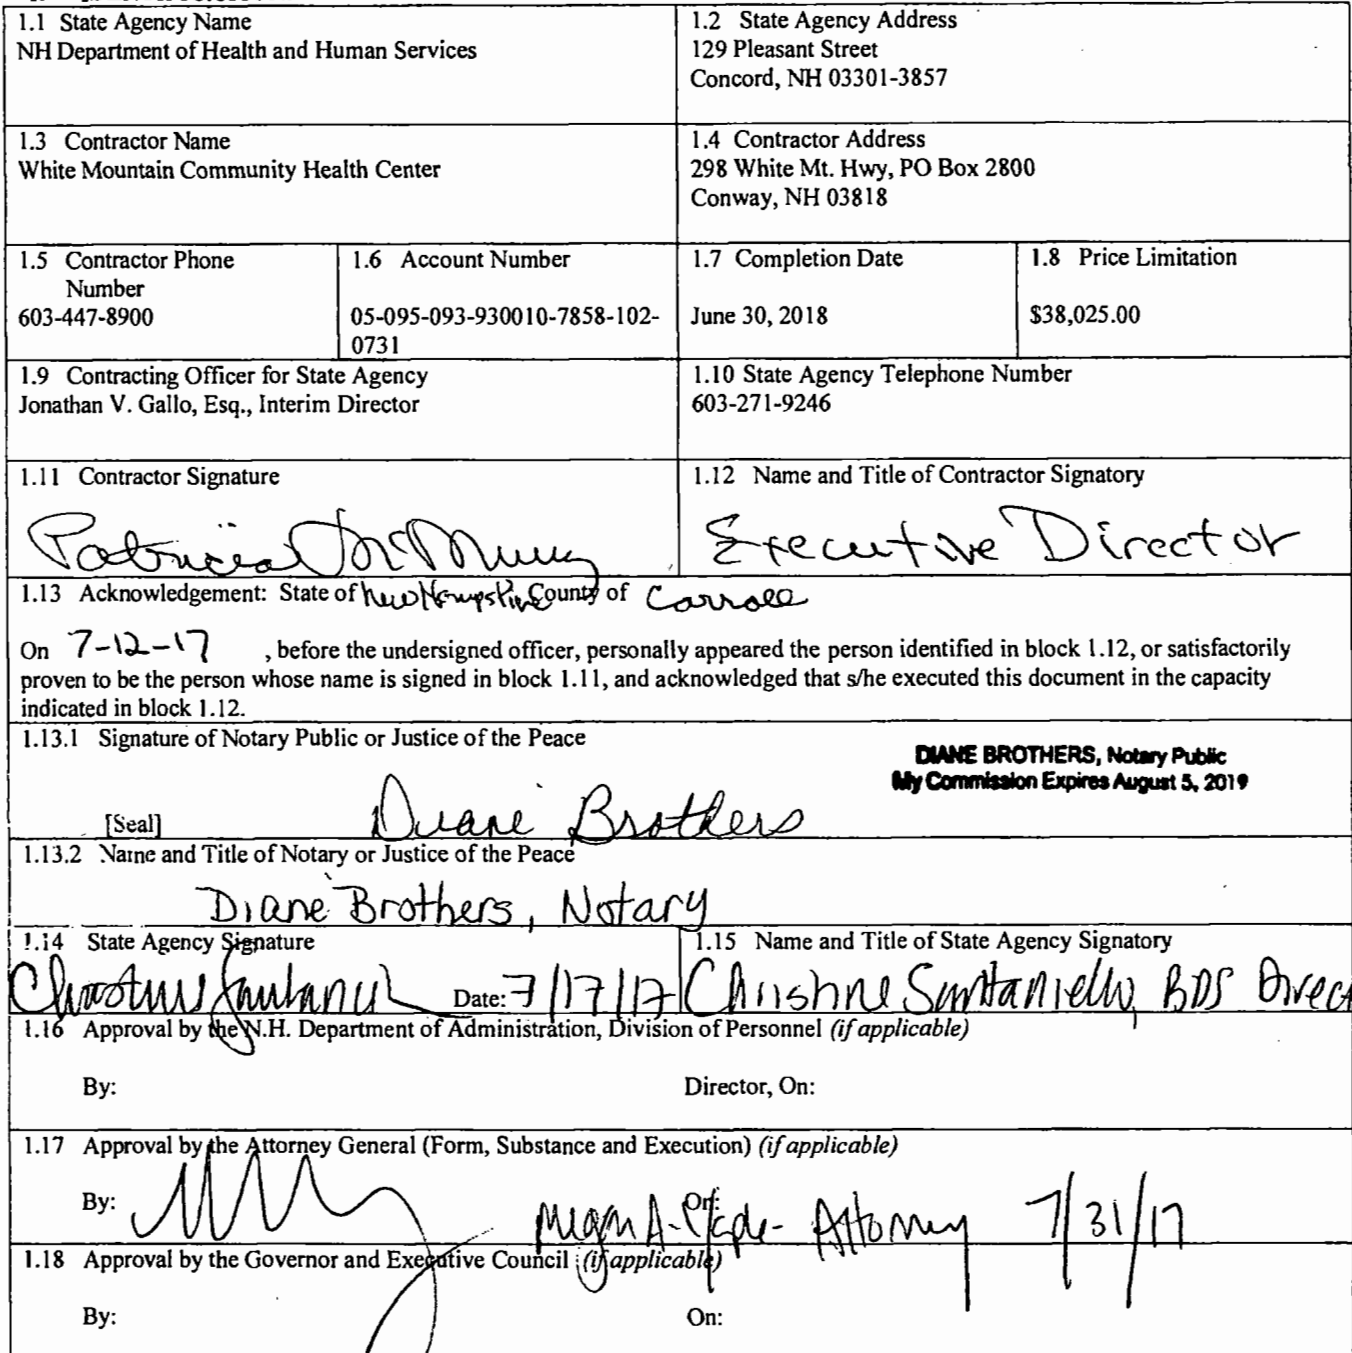 1.1 State Agency Name
NH Department of Health and Human Services
1.2 State Agency Address
129 Pleasant Street
Concord, NH 03301-3857
1.3 Contractor Name
White Mountain Community Health Center
1.4 Contractor Address
298 White Mt. Hwy, PO Box 2800
Conway, NH 03818
1.5 Contractor Phone
Number
603-447-8900
1.6 Account Number
05-095-093-930010-7858-102-
0731
1.7 Completion Date
June 30, 2018
1.8 Price Limitation
$38,025.00
1.9 Contracting Officer for State Agency
Jonathan V. Gallo, Esq., Interim Director
1.10 State Agency Telephone Number
603-271-9246
1.11 Contractor Signature
Patricia McMurry
1.12 Name and Title of Contractor Signatory
Executive Director
1.13 Acknowledgement: State of New Hampshire County of Carroll
On 7-12-17 , before the undersigned officer, personally appeared the person identified in block 1.12, or satisfactorily
proven to be the person whose name is signed in block 1.11, and acknowledged that s/he executed this document in the capacity
indicated in block 1.12.
1.13.1 Signature of Notary Public or Justice of the Peace
DIANE BROTHERS, Notary Public
My Commission Expires August 5, 2019
[Seal] Diane Brothers
1.13.2 Name and Title of Notary or Justice of the Peace
Diane Brothers, Notary
1.14 State Agency Signature
Christine Santaniello Date: 7/17/17
1.15 Name and Title of State Agency Signatory
Christine Santaniello, BDS Direct
1.16 Approval by the N.H. Department of Administration, Division of Personnel (if applicable)
By: Director, On:
1.17 Approval by the Attorney General (Form, Substance and Execution) (if applicable)
By: On: Megan A. - Attorney 7/31/17
1.18 Approval by the Governor and Executive Council (if applicable)
By: On: